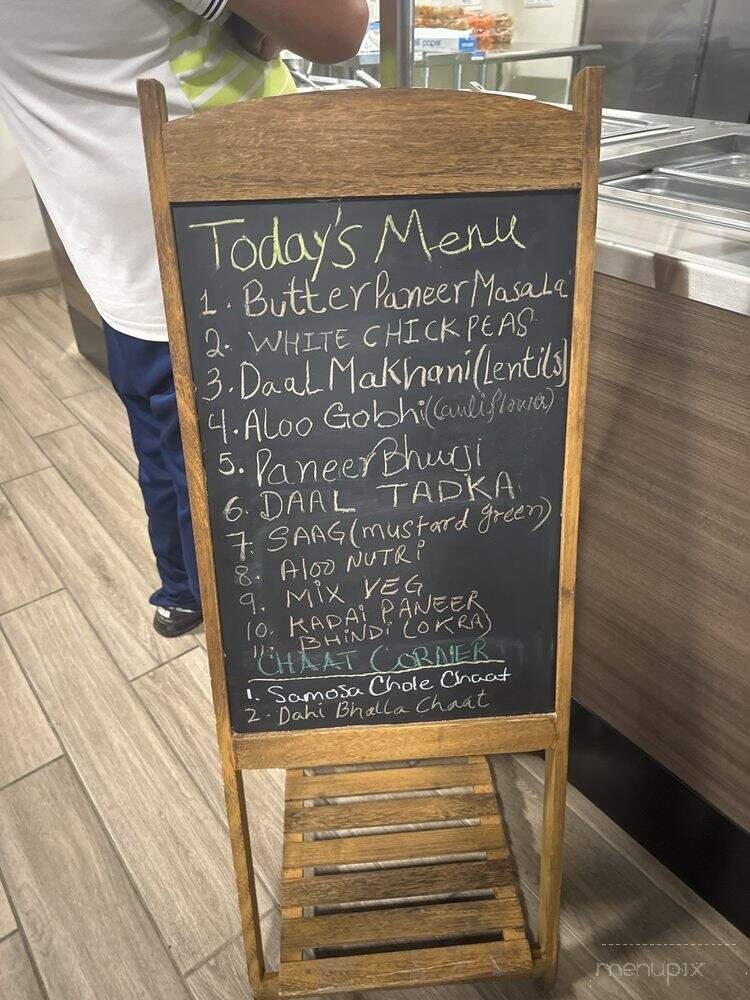 Today's Menu
1. Butter Paneer Masala
2. WHITE CHICKPEAS
3. Daal Makhani (lentils)
4. Aloo Gobhi (cauliflower)
5. Paneer Bhurji
6. DAAL TADKA
7. SAAG (mustard green)
8. Aloo NUTRi
9. MIX VEG
10. KADAI PANEER
11. BHINDI (OKRA)
CHAAT CORNER
1. Samosa Chole Chaat
2. Dahi Bhalla Chaat
menupix